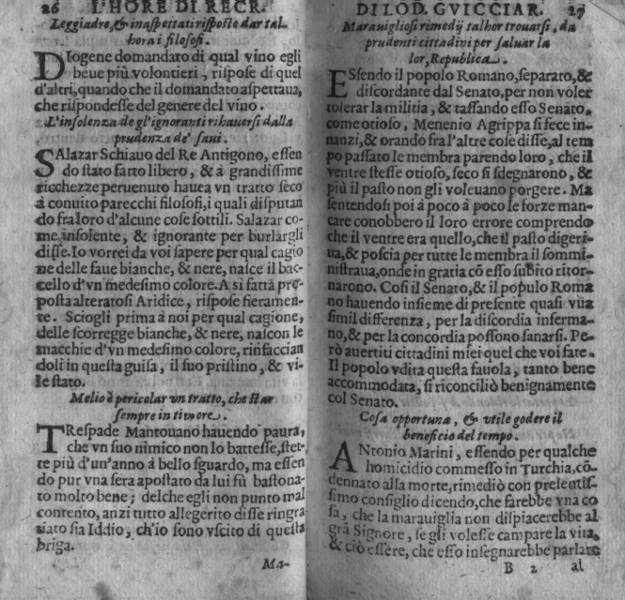 26 L'HORE DI RECR.
Leggiadre, & inaspettati risposte dar tal-
hora i filosofi.
DIogene domandato di qual vino egli
beue più volontieri, rispose di quel
d'altri, quando che il domandato aspettaua,
che rispondesse del genere del vino.
L'insolenza de gl'ignoranti rihauersi dalla
prudenza de' saui.
SAlazar Schiauo del Re Antigono, essen
do stato fatto libero, & à grandissime
ricchezze peruenuto hauea vn tratto seco
à conuito parecchi filosofi, i quali disputan
do fra loro d'alcune cose sottili. Salazar co-
me insolente, & ignorante per burlargli
disse. Io vorrei da voi sapere per qual cagio
ne delle faue bianche, & nere, nasce il bac-
cello d'vn medesimo colore. A sì fatta pro-
posta alteratosi Aridice, rispose fieramen-
te. Sciogli prima à noi per qual cagione,
delle scorregge bianche, & nere, nascon le
macchie d'vn medesimo colore, rinfaccian
doli in questa guisa, il suo pristino, & vi-
le stato.
Melio è pericolar vn tratto, che star
sempre in timore.
TRespade Mantouano hauendo paura,
che vn suo nimico non lo battesse, stet-
te più d'un'anno à bello sguardo, ma essen
do pur vna sera apostato da lui fù bastona-
to molto bene; delche egli non punto mal
contento, anzi tutto allegerito disse ringra
tiato sia Iddio, ch'io sono vscito di questa
briga.
Ma-
DI LOD. GVICCIAR. 27
Marauigliosi rimedij talhor trouarsi, da
prudenti cittadini per saluar la
lor, Republica.
ESsendo il popolo Romano, separato, &
discordante dal Senato, per non voler
tolerar la militia, & tassando esso Senato,
come otioso, Menenio Agrippa si fece in-
nanzi, & orando fra l'altre cose disse, al tem
po passato le membra parendo loro, che il
ventre stesse otioso, seco si sdegnarono, &
più il pasto non gli voleuano porgere. Ma
sentendosi poi à poco à poco le forze man-
care conobbero il loro errore comprendo
che il ventre era quello, che il pasto digeri-
ua, & poscia per tutte le membra il sommi-
nistraua, onde in gratia cō esso subito ritor-
narono. Così il Senato, & il populo Roma
no hauendo insieme di presente quasi vna
simil differenza, per la discordia inferma-
no, & per la concordia possono sanarsi. Pe-
rò auertiti cittadini miei quel che voi fate.
Il popolo vdita questa fauola, tanto bene
accommodata, si riconciliò benignamente
col Senato.
Cosa opportuna, & vtile godere il
beneficio del tempo.
ANtonio Marini, essendo per qualche
homicidio commesso in Turchia, cō-
dennato alla morte, rimediò con presentis-
simo consiglio dicendo, che farebbe vna co
sa, che la marauiglia non dispiacerebbe al
grā Signore, se gli volesse campare la vita,
& ciò essere, che esso insegnarebbe parlare
B 2 al